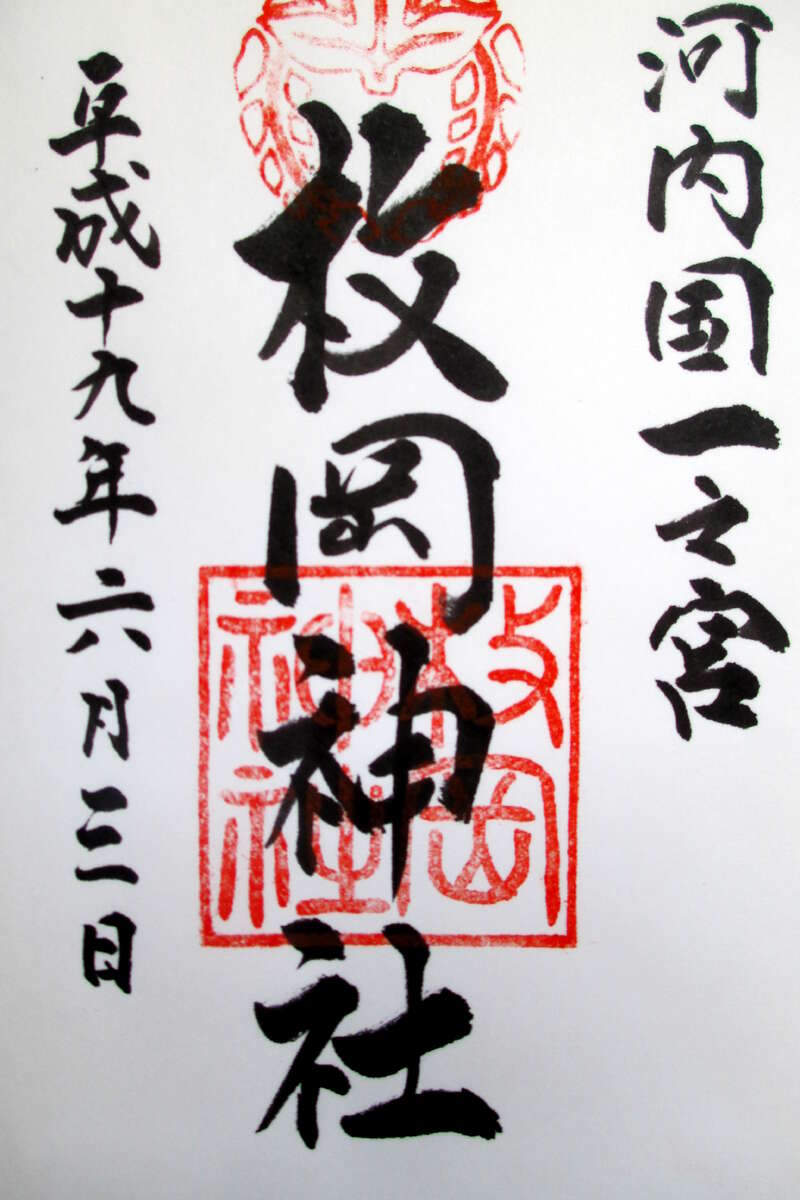 河内国一之宮
枚岡神社
枚岡
神社
平成十九年六月三日